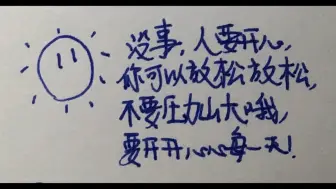 没事，人要开心，
你可以放松放松，
不要压力山大哦，
要开开心心每一天！